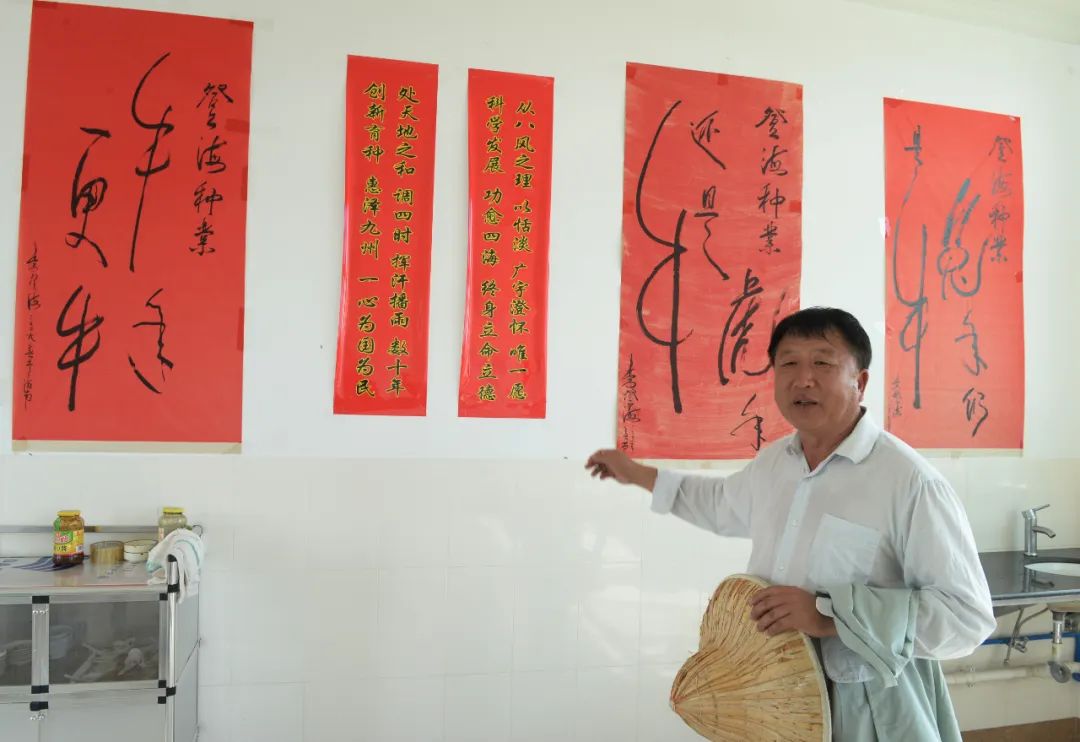 登海种业
牛年
更牛
李登海
处天地之和 调四时 挥汗播雨 数十年
创新育种 惠泽九州 一心为国为民
从八风之理 以恬淡 广宇澄怀 唯一愿
科学发展 功愈四海 终身立命立德
登海种业
虎年
还是
牛
李登海
登海种业
兔年仍
是牛